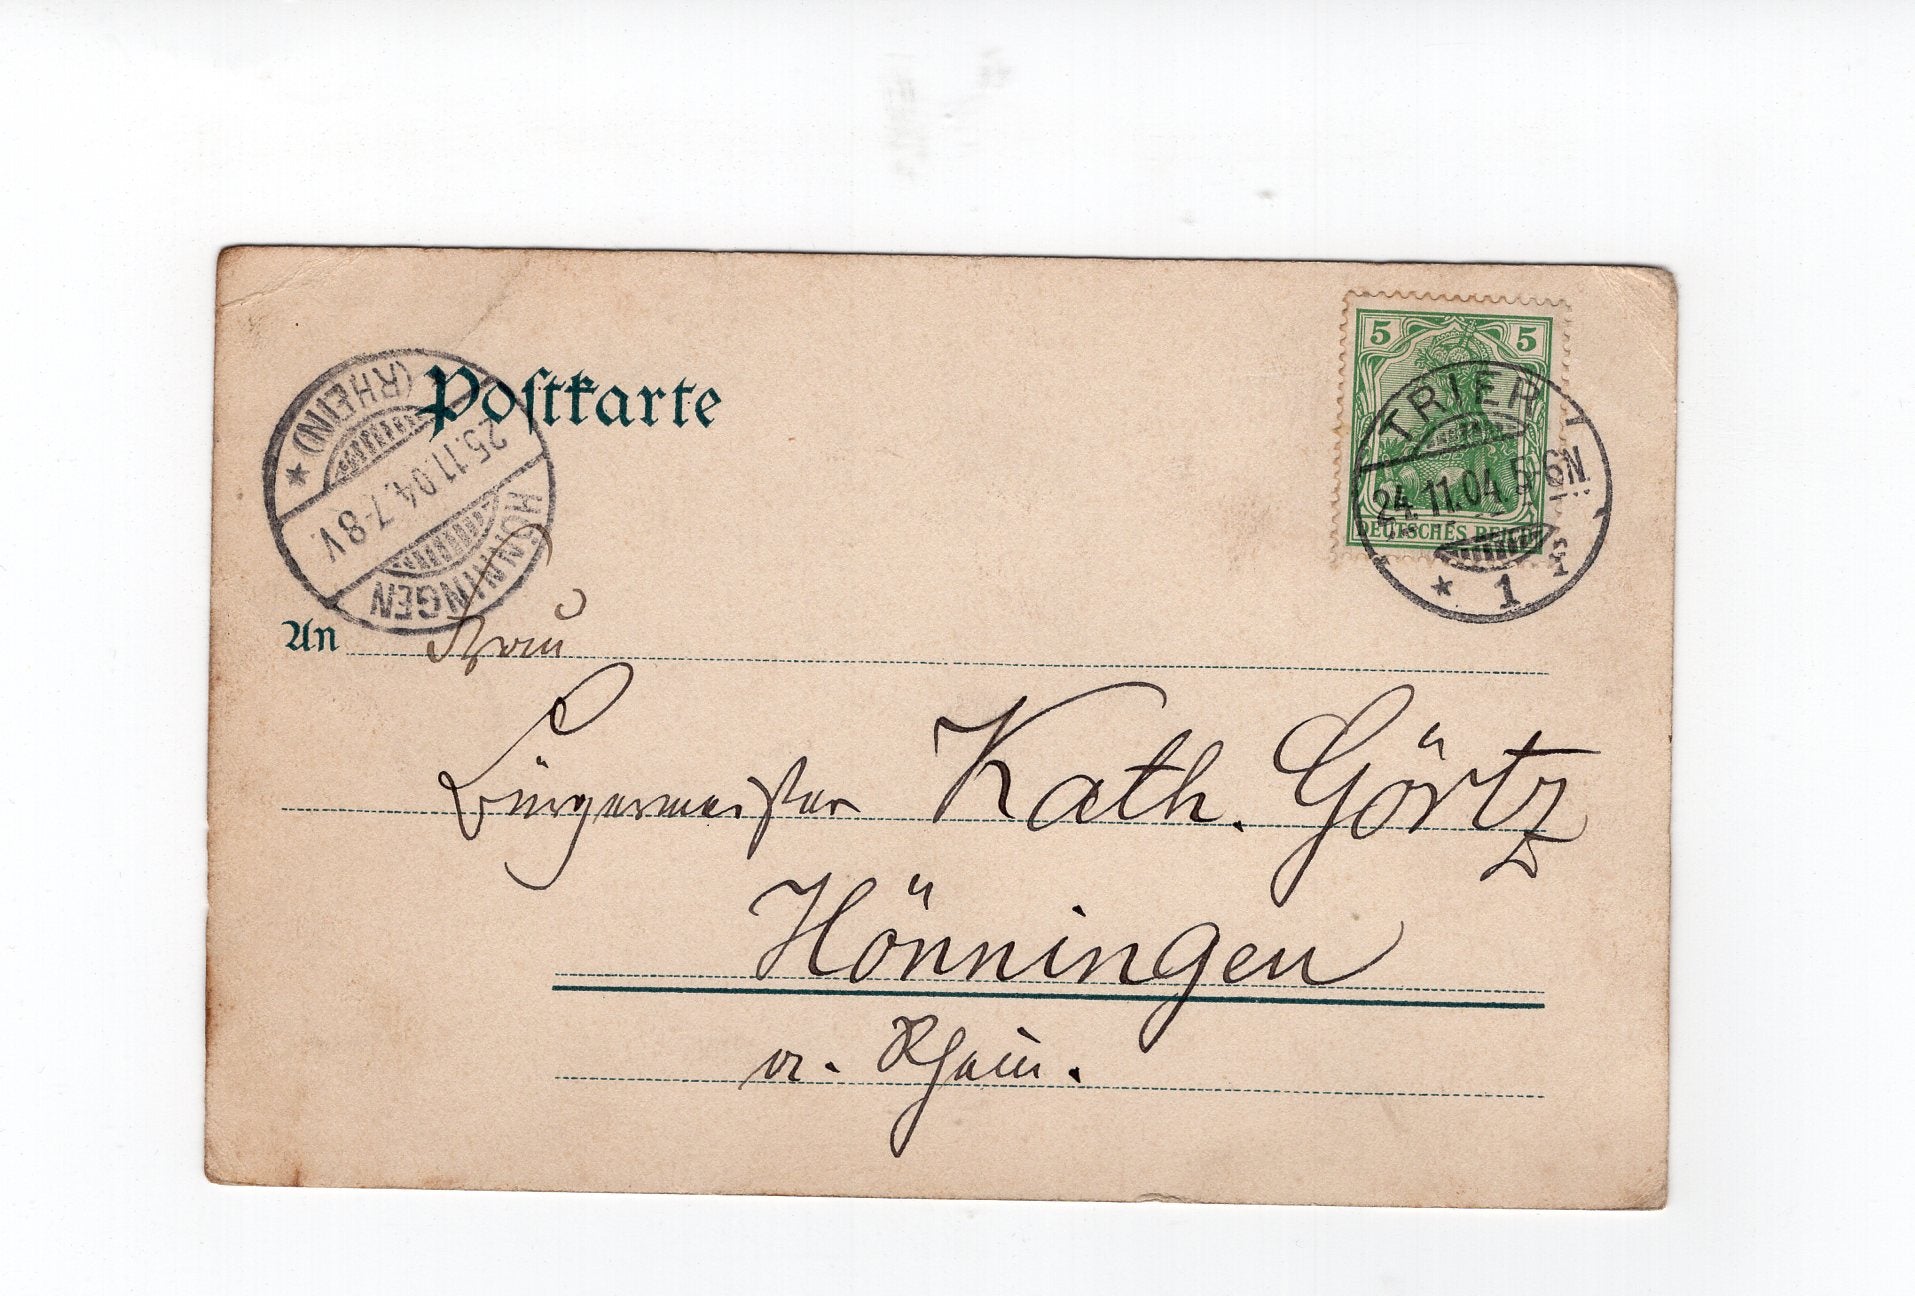 Postkarte
(RHEIN)
25.11.04.7-8V.
HÖNNINGEN
5 5
DEUTSCHES REICH
TRIER
24.11.04.5-6N
* 1
An Frau
Bürgermeister Kath. Görtz
Hönningen
a. Rhein.